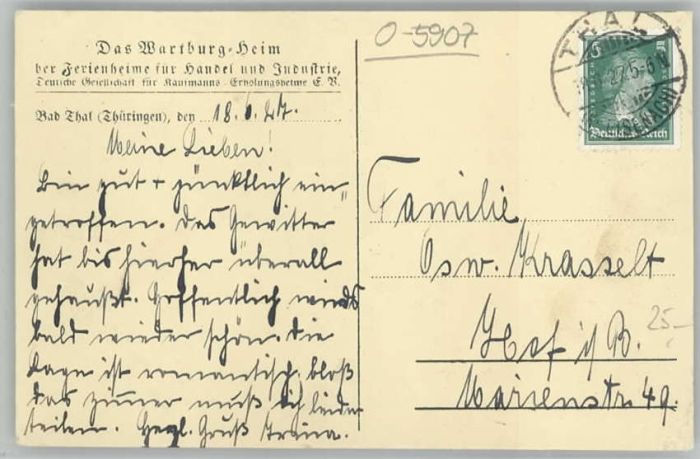 O-5907
Das Wartburg-Heim
der Ferienheime für Handel und Industrie,
Deutsche Gesellschaft für Kaufmanns-Erholungsheime E. V.
Bad Thal (Thüringen), den 18.6.27.
Meine Lieben!
Bin gut + pünktlich ein-
getroffen. Das Gewitter
hat bis hierher überall
gehaußt. Hoffentlich wirds
bald wieder schön. Die
Lage ist romantisch, bloß
das Zimmer muß ich leider
teilen. Herzl. Gruß
THAL
27.5-6N
Deutsches Reich
Familie
Osw. Krasselt
Hof i/B.
Marienstr. 49.
25,-